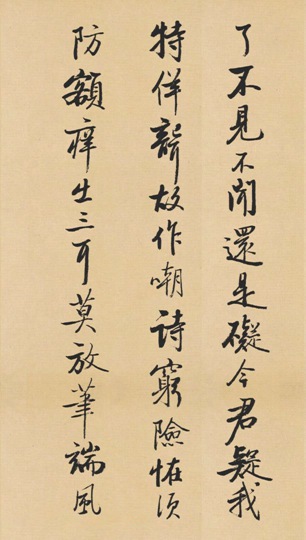 了不見不聞還是礙今君疑我
特佯聾故作嘲詩窮險怪須
防額癢出三耳莫放筆端風